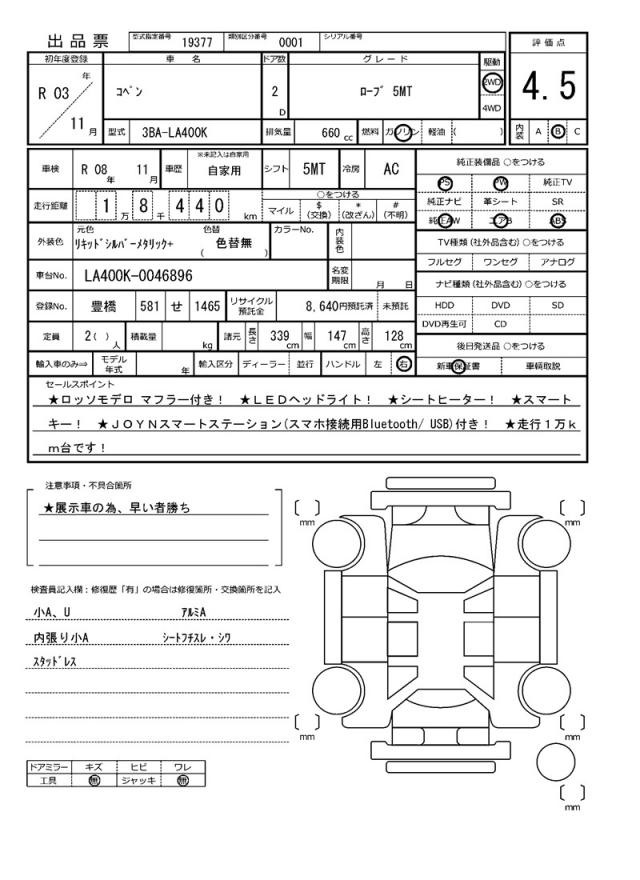 出品票 型式指定番号 19377 類別区分番号 0001 シリアル番号
初年度登録 車 名 ドア数 グレード 駆動 評価点
R 03 年 11 月 コペン 2 D ローブ 5MT 2WD 4WD 4.5
型式 3BA-LA400K 排気量 660 cc 燃料 ガソリン 軽油 ( ) 内装 A B C
車検 R 08 年 11 月 車歴 ※未記入は自家用 自家用 シフト 5MT 冷房 AC 純正装備品 ○をつける
PS PW 純正TV
走行距離 1 万 8 千 4 4 0 km ○をつける 純正ナビ 革シート SR
マイル $ (交換) * (改ざん) # (不明) 純正AW エアB ABS
外装色 元色 リキッドシルバーメタリック+ 色替 ( 色替無 ) カラーNo. 内装色 TV種類 (社外品含む) ○をつける
フルセグ ワンセグ アナログ
車台No. LA400K-0046896 名変期限 月 日 ナビ種類 (社外品含む) ○をつける
登録No. 豊橋 581 せ 1465 リサイクル預託金 8,640円預託済 未預託 HDD DVD SD
DVD再生可 CD
定員 2( ) 人 積載量 kg 諸元 長さ 339 cm 幅 147 cm 高さ 128 cm 後日発送品 ○をつける
輸入車のみ⇒ モデル年式 年 輸入区分 ディーラー 並行 ハンドル 左 右 新車保証書 車輌取説
セールスポイント
★ロッソモデロ マフラー付き! ★LEDヘッドライト! ★シートヒーター! ★スマート
キー! ★JOYNスマートステーション(スマホ接続用Bluetooth/ USB)付き! ★走行1万k
m台です!
注意事項・不具合箇所
★展示車の為、早い者勝ち
mm mm
検査員記入欄:修復歴「有」の場合は修復箇所・交換箇所を記入
小A、U アルミA
内張り小A シートフチスレ・シワ
スタッドレス
mm mm
ドアミラー キズ ヒビ ワレ
工具 無 ジャッキ 無
mm